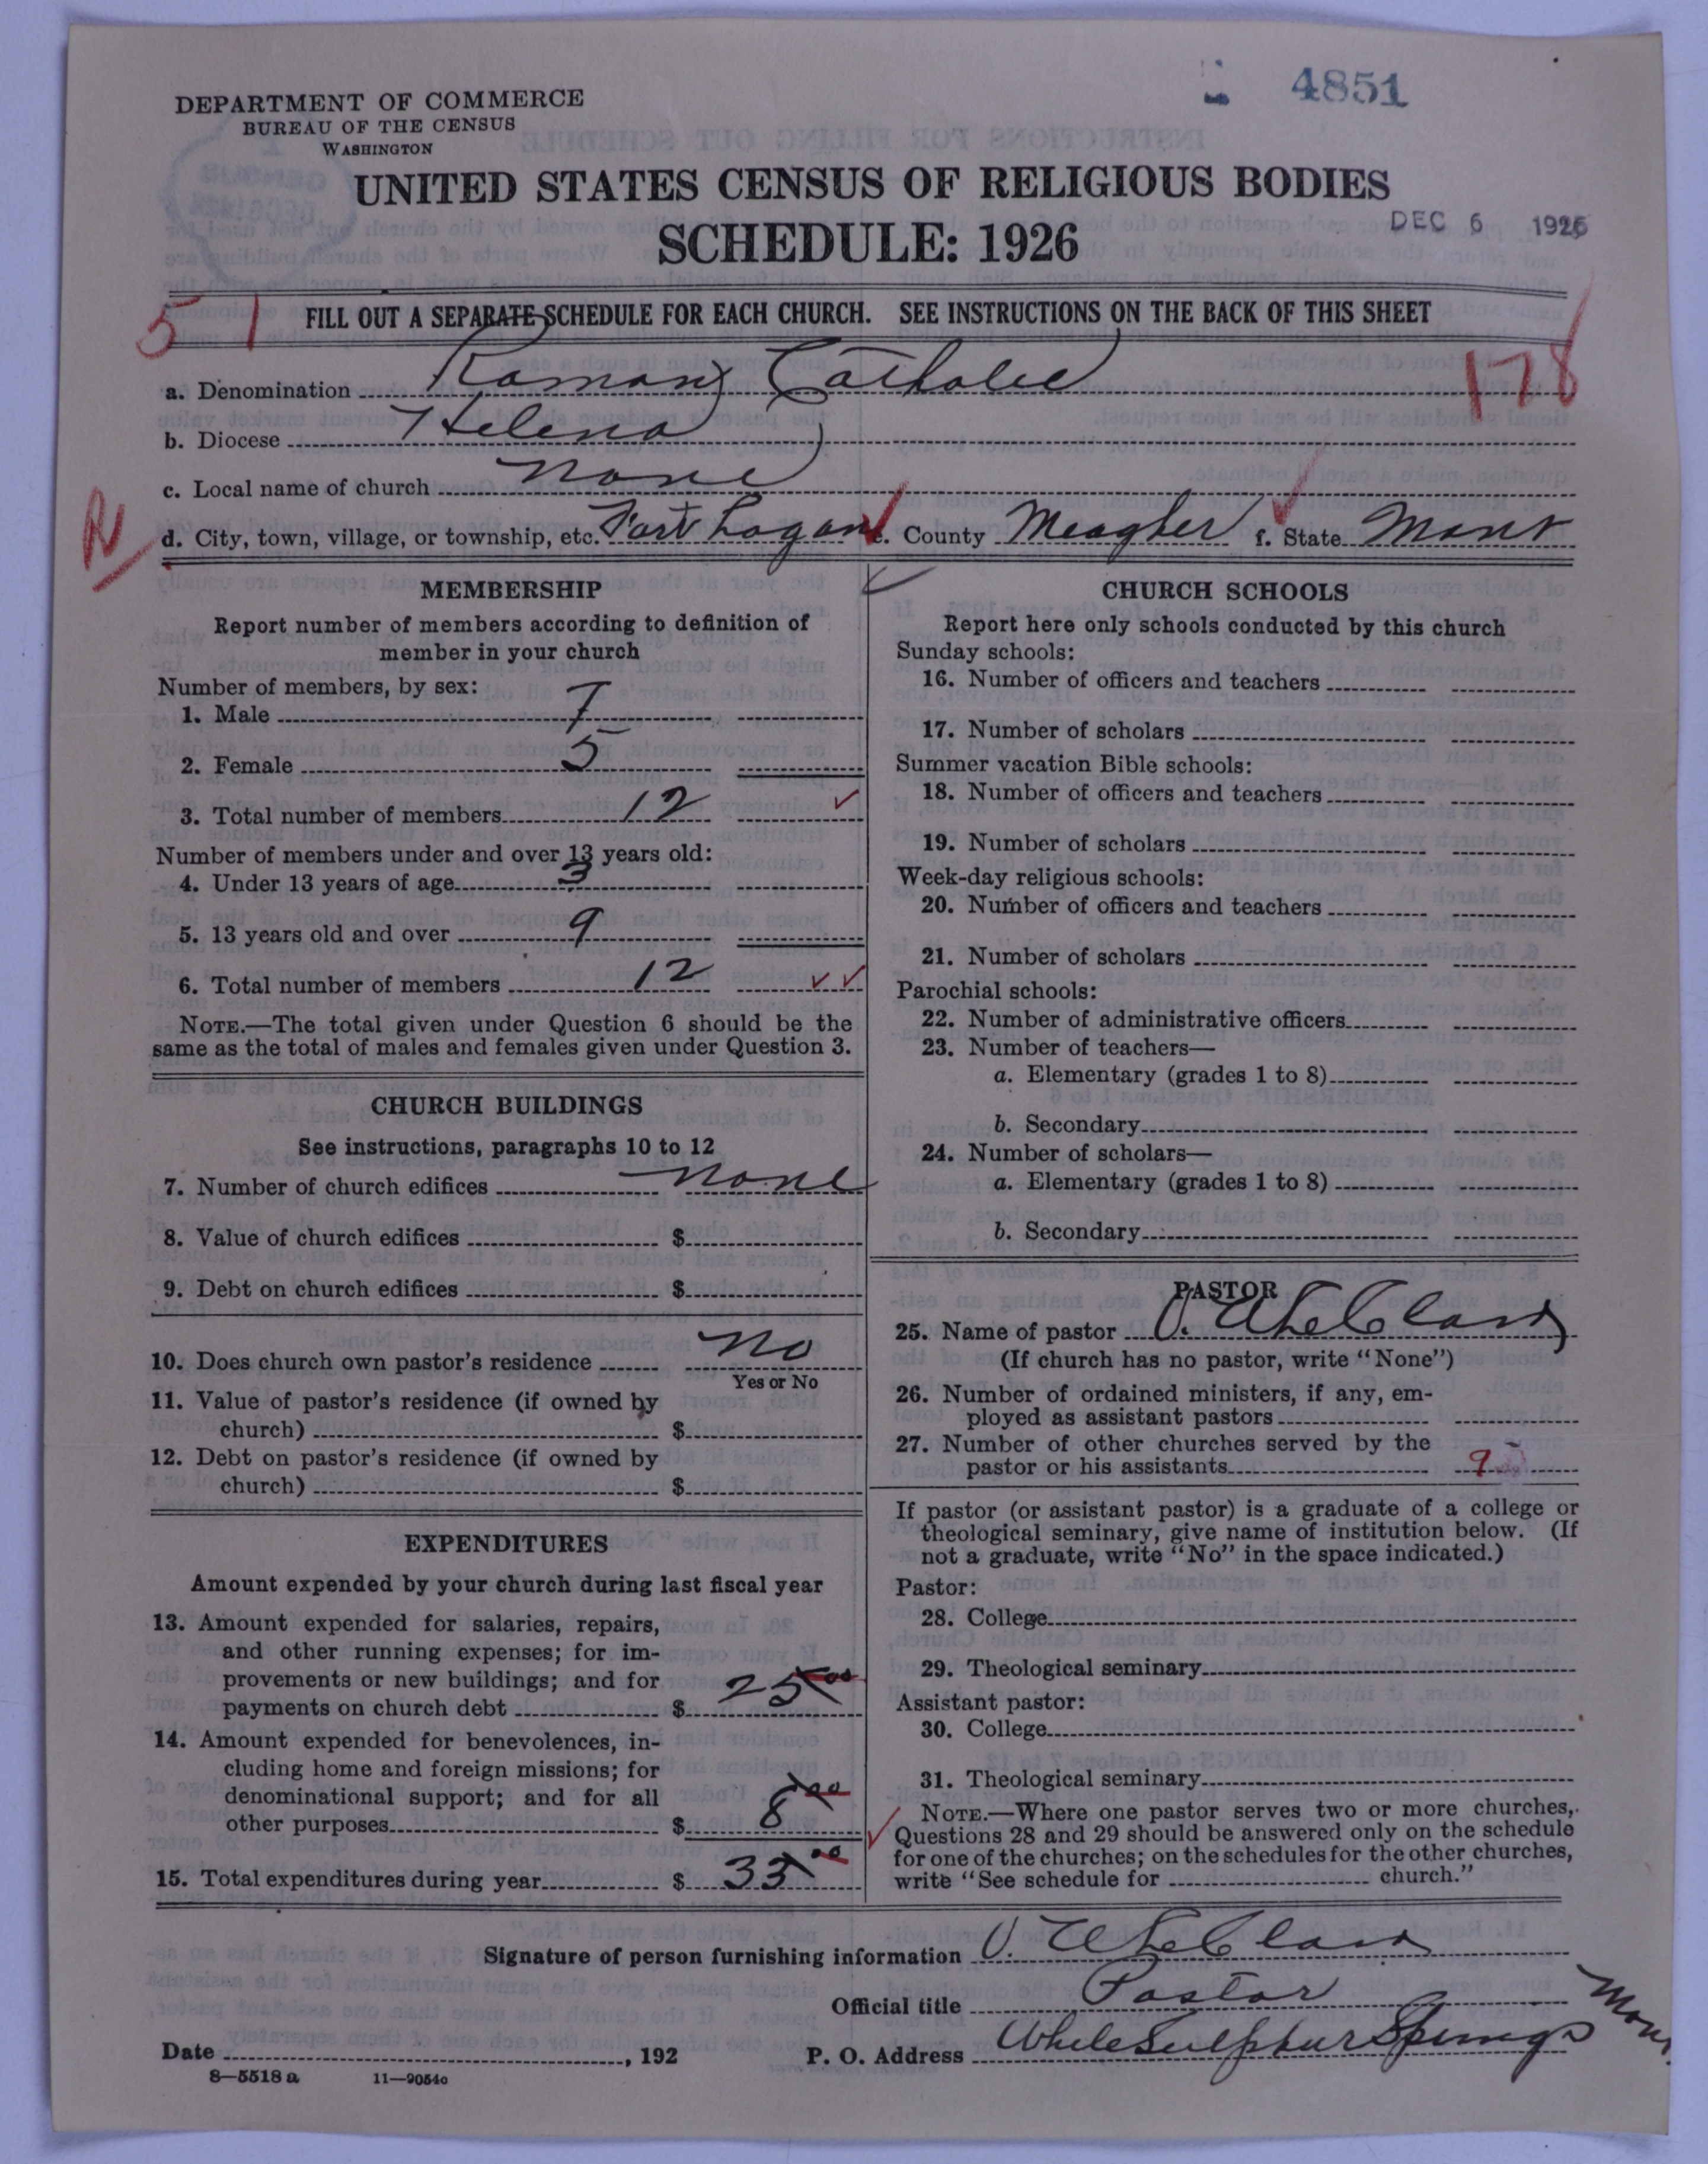 4851
DEPARTMENT OF COMMERCE
BUREAU OF THE CENSUS
WASHINGTON
UNITED STATES CENSUS OF RELIGIOUS BODIES
SCHEDULE: 1926
DEC 6 1926
5 1
FILL OUT A SEPARATE SCHEDULE FOR EACH CHURCH. SEE INSTRUCTIONS ON THE BACK OF THIS SHEET
178
a. Denomination Roman Catholic
b. Diocese Helena
c. Local name of church none
R
d. City, town, village, or township, etc. Fort Logan e. County Meagher f. State Mont
MEMBERSHIP
Report number of members according to definition of
member in your church
Number of members, by sex:
1. Male 7
2. Female 5
3. Total number of members 12
Number of members under and over 13 years old:
4. Under 13 years of age 3
5. 13 years old and over 9
6. Total number of members 12
NOTE.—The total given under Question 6 should be the
same as the total of males and females given under Question 3.
CHURCH BUILDINGS
See instructions, paragraphs 10 to 12
7. Number of church edifices none
8. Value of church edifices $
9. Debt on church edifices $
10. Does church own pastor's residence no
Yes or No
11. Value of pastor's residence (if owned by
church) $
12. Debt on pastor's residence (if owned by
church) $
EXPENDITURES
Amount expended by your church during last fiscal year
13. Amount expended for salaries, repairs,
and other running expenses; for im-
provements or new buildings; and for
payments on church debt $ 25 00
14. Amount expended for benevolences, in-
cluding home and foreign missions; for
denominational support; and for all
other purposes $ 8 00
15. Total expenditures during year $ 33 00
CHURCH SCHOOLS
Report here only schools conducted by this church
Sunday schools:
16. Number of officers and teachers
17. Number of scholars
Summer vacation Bible schools:
18. Number of officers and teachers
19. Number of scholars
Week-day religious schools:
20. Number of officers and teachers
21. Number of scholars
Parochial schools:
22. Number of administrative officers
23. Number of teachers—
a. Elementary (grades 1 to 8)
b. Secondary
24. Number of scholars—
a. Elementary (grades 1 to 8)
b. Secondary
PASTOR
25. Name of pastor
(If church has no pastor, write "None")
26. Number of ordained ministers, if any, em-
ployed as assistant pastors
27. Number of other churches served by the
pastor or his assistants 9
If pastor (or assistant pastor) is a graduate of a college or
theological seminary, give name of institution below. (If
not a graduate, write "No" in the space indicated.)
Pastor:
28. College
29. Theological seminary
Assistant pastor:
30. College
31. Theological seminary
NOTE.—Where one pastor serves two or more churches,
Questions 28 and 29 should be answered only on the schedule
for one of the churches; on the schedules for the other churches,
write "See schedule for church."
Signature of person furnishing information
Official title Pastor
Date , 192
P. O. Address White Sulphur Springs Mon.
8—5518 a 11—9054o